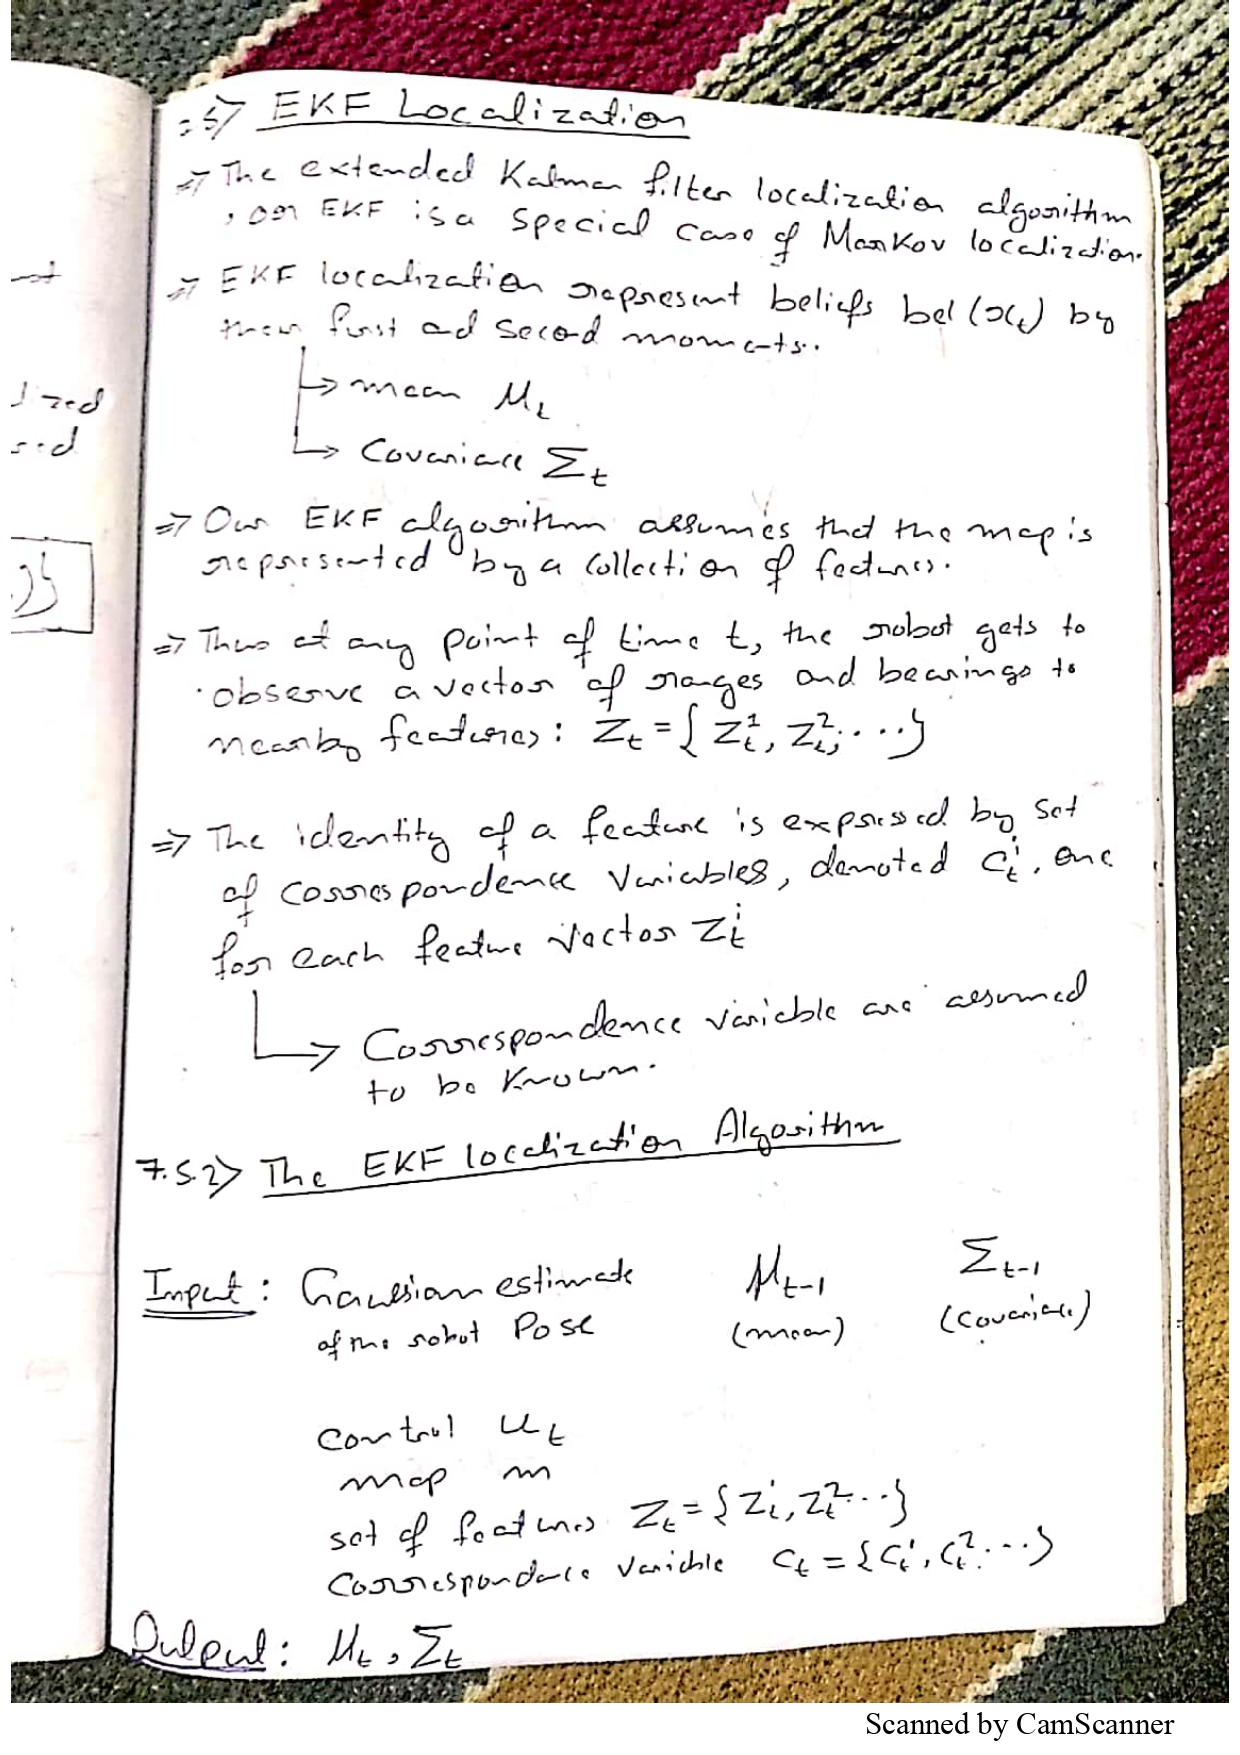 .5> EKF Localization
=> The extended Kalman filter localization algorithm
, or EKF is a special case of Markov localization.
=> EKF localization represent beliefs bel(x_t) by
their first and second moments.
→ mean μ_t
→ Covariance Σ_t
=> Our EKF algorithm assumes that the map is
represented by a collection of features.
=> Thus at any point of time t, the robot gets to
observe a vector of ranges and bearings to
nearby features: Z_t = { Z_t^1, Z_t^2, ...}
=> The identity of a feature is expressed by set
of correspondence variables, denoted C_t^i, one
for each feature vector Z_t^i
→ Correspondence variable are assumed
to be known.
7.5.2> The EKF localization Algorithm
Input: Gaussian estimate μ_t-1 Σ_t-1
of the robot Pose (mean) (covariance)
control u_t
map m
set of features Z_t = {Z_t^1, Z_t^2...}
Correspondence variable C_t = {C_t^1, C_t^2...}
Output: μ_t, Σ_t
lized
Scanned by CamScanner